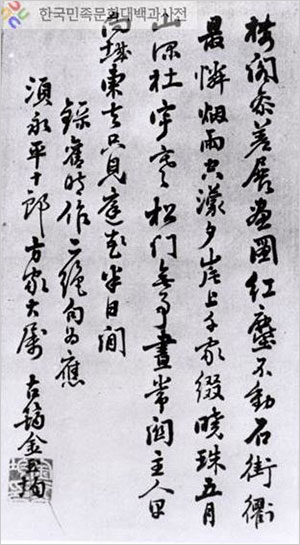 한국민족문화대백과사전
樓閣參差展畫圖紅塵不動石街衢
最憐烟雨空濛夕崖上千家綴曉珠五月
山深杜宇寒松門無事晝常關主人
向城東去只見庭花半日閒
錄舊時作二絶句為應
須永平十郎方家大屬 古筠金玉均